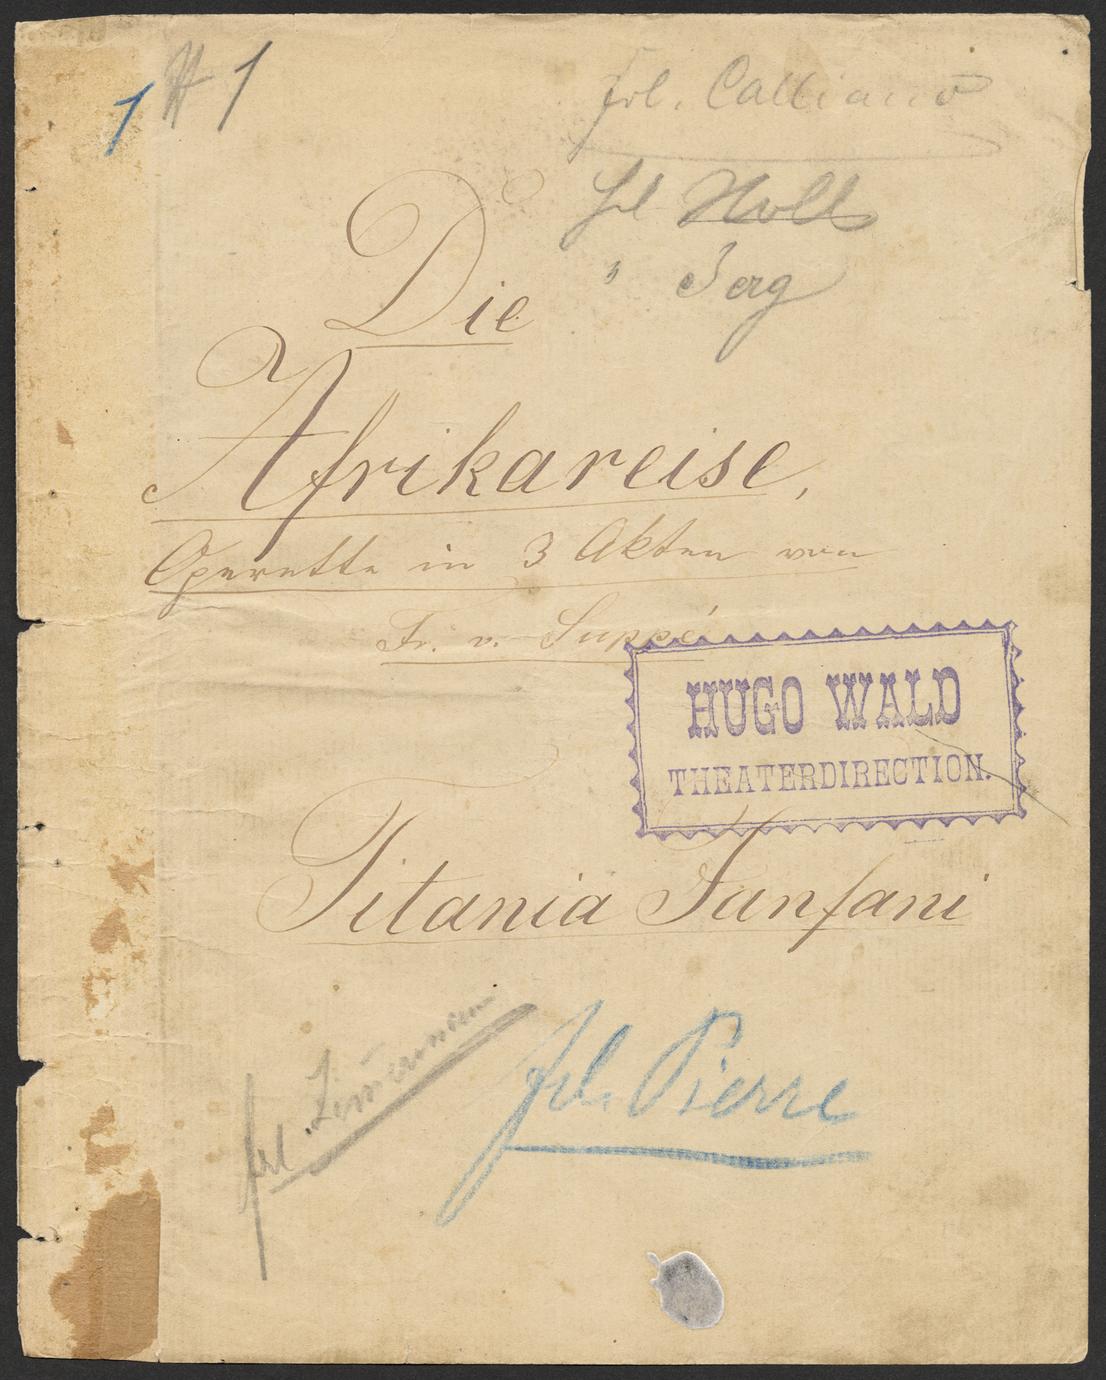 1 # 1
Frl. Calliano
Frl Noll
" Berg
Die
Afrikareise,
Operette in 3 Akten von
Fr. v. Suppé
HUGO WALD
THEATERDIRECTION.
Titania Fanfani
Frl. Pierre